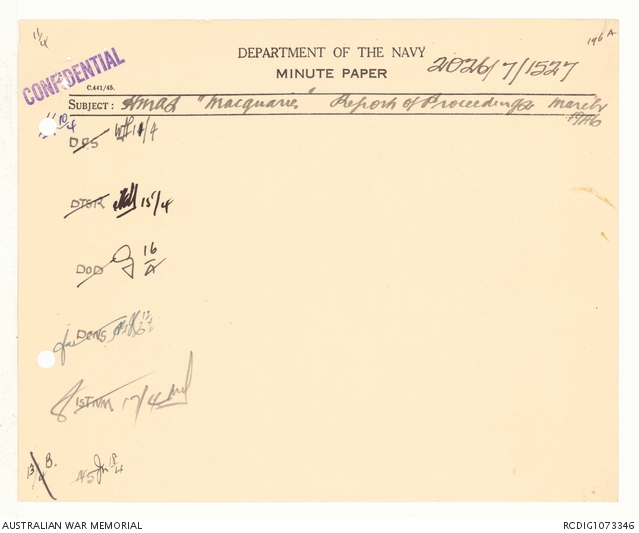 11/4
196A
CONFIDENTIAL
DEPARTMENT OF THE NAVY
MINUTE PAPER
2026/7/1527
C.441/45.
SUBJECT: HMAS "Macquarie" Report of Proceedings March
1946
10/4
DPS 11/4
DTSR 15/4
DOD 16/4
DCNS
1STNM 17/4
13/4 B.
NS 18/4
AUSTRALIAN WAR MEMORIAL
RCDIG1073346